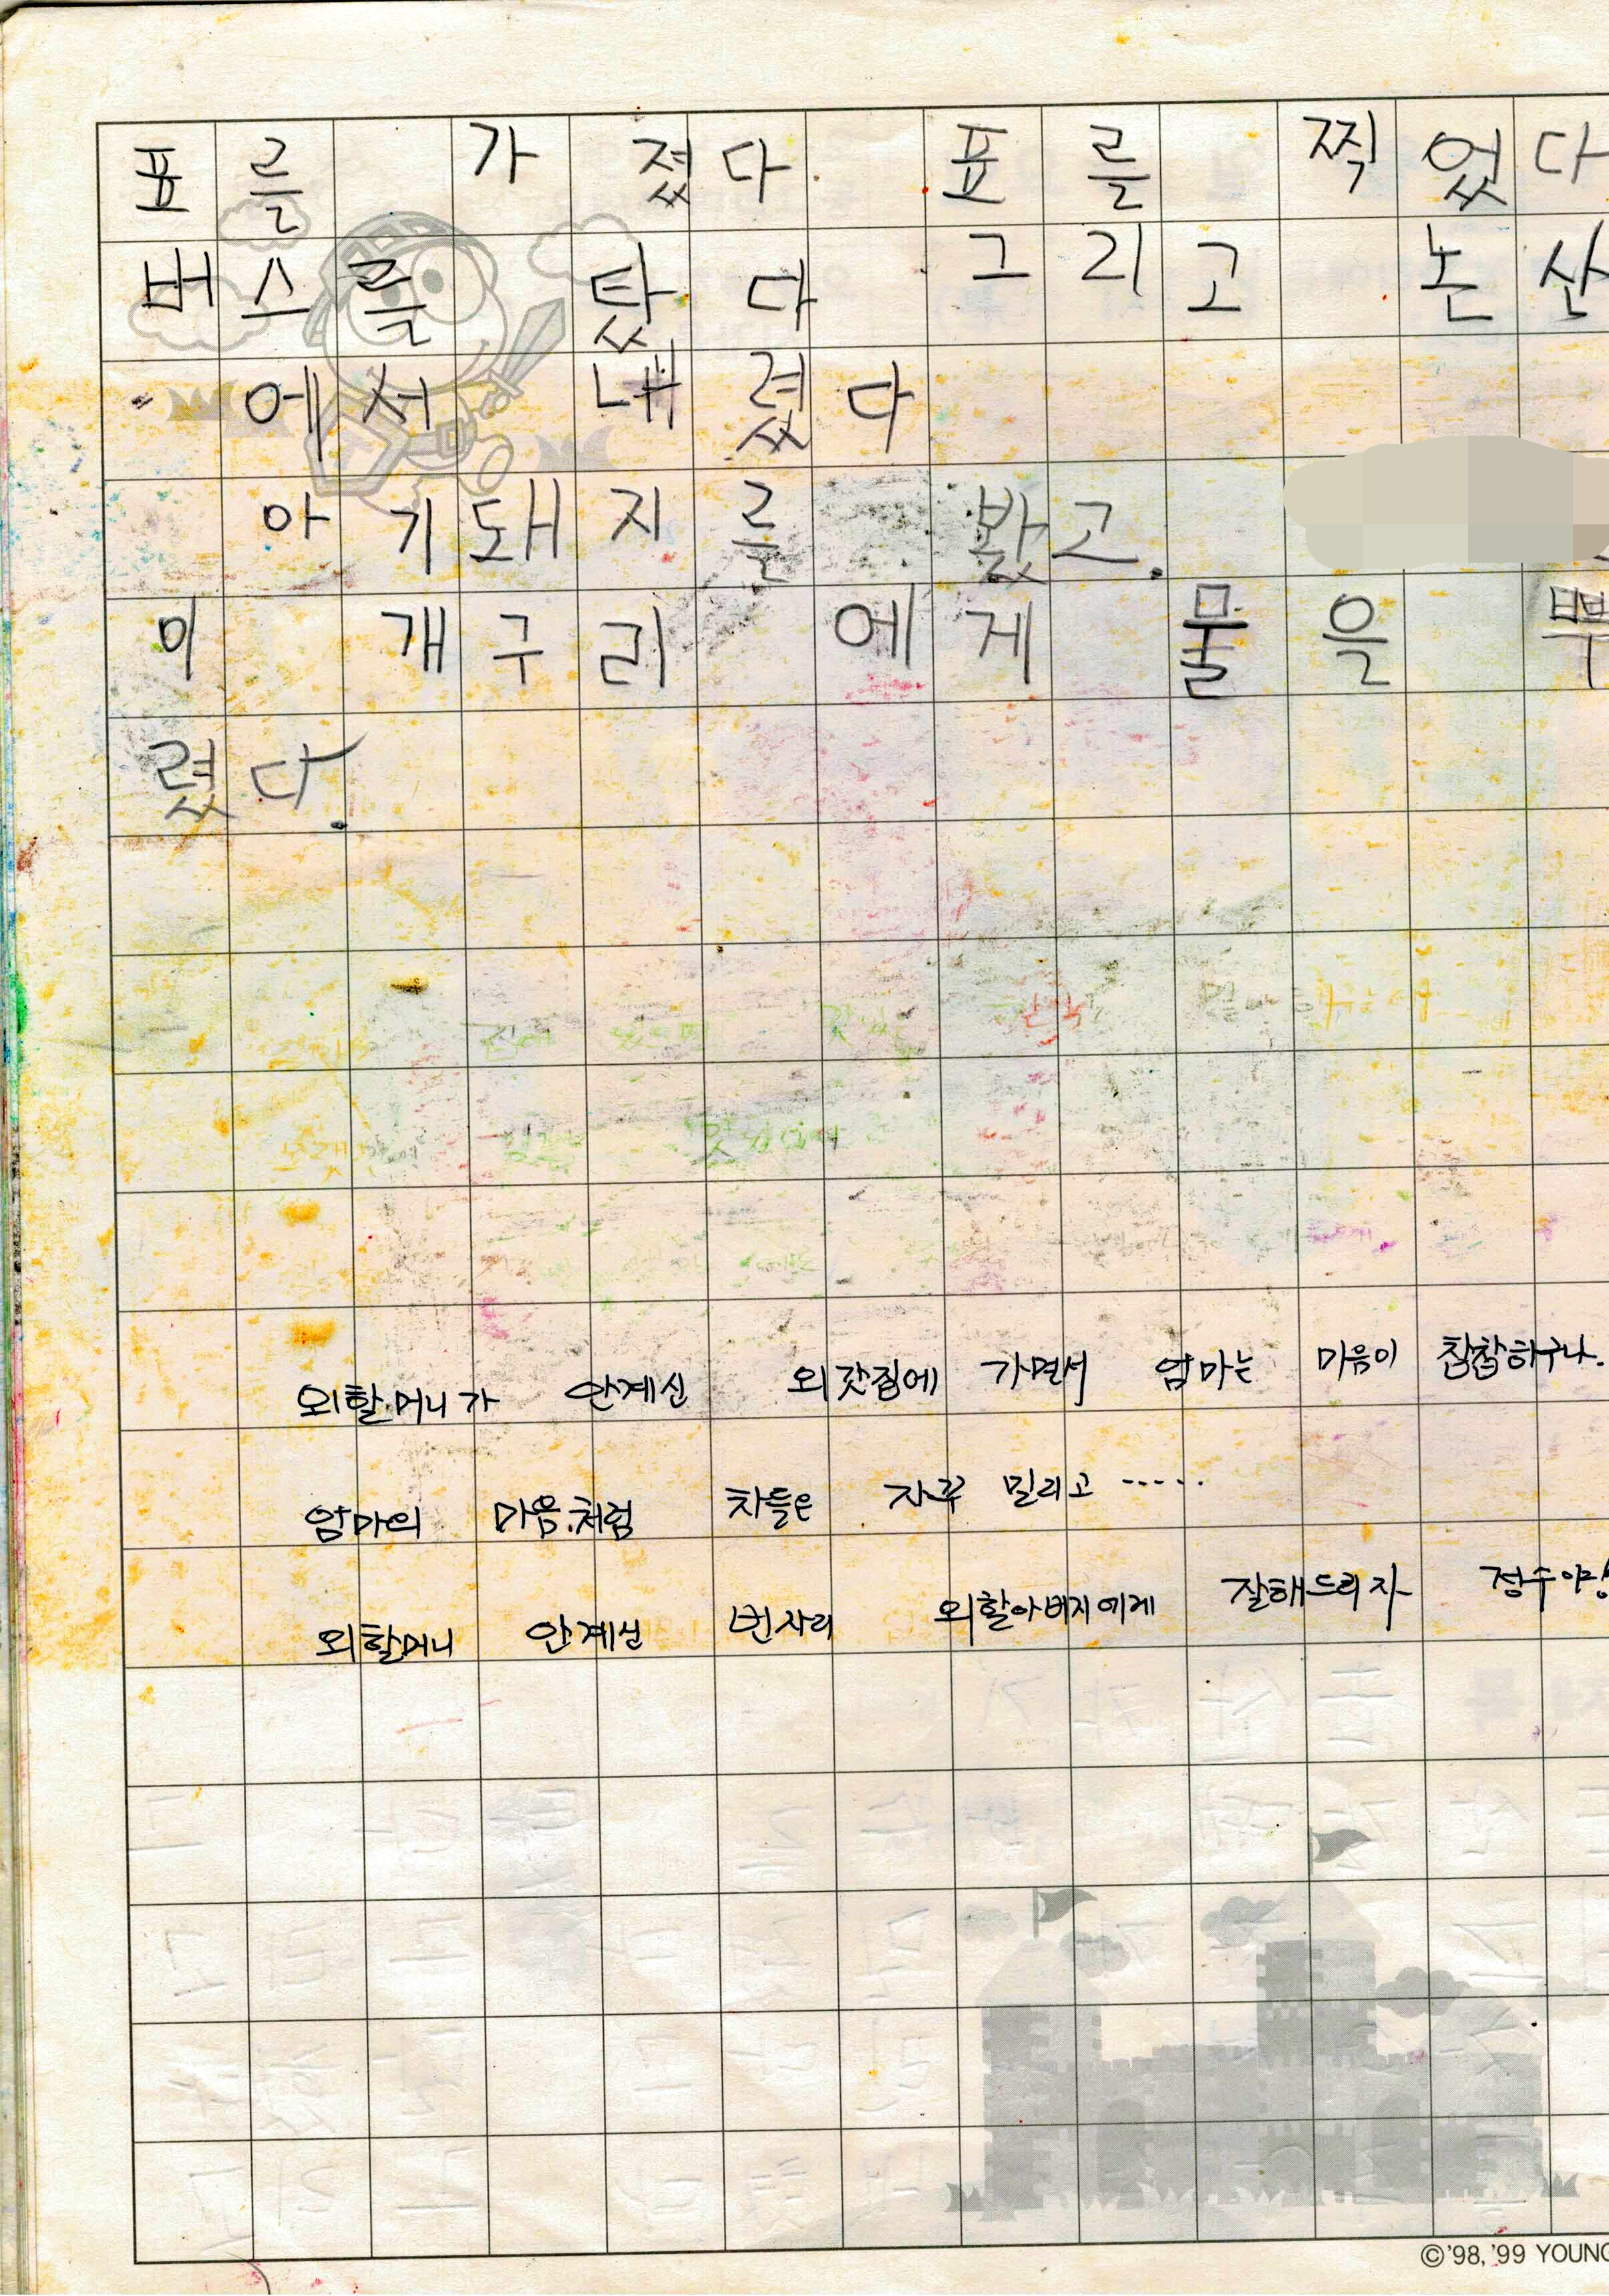 표를 가졌다. 표를 찍었다
버스를 탔다 그리고 논산
에서 내렸다
아기돼지를 봤고.
이 개구리 에게 물을 뿌
렸다.
외할머니가 안계신 외갓집에 가면서 엄마는 마음이 참참하구나.
엄마의 마음처럼 차들은 자꾸 밀리고 .....
외할머니 안계신 빈자리 외할아버지에게 잘해드리자 정수야!
©'98, '99 YOUNG